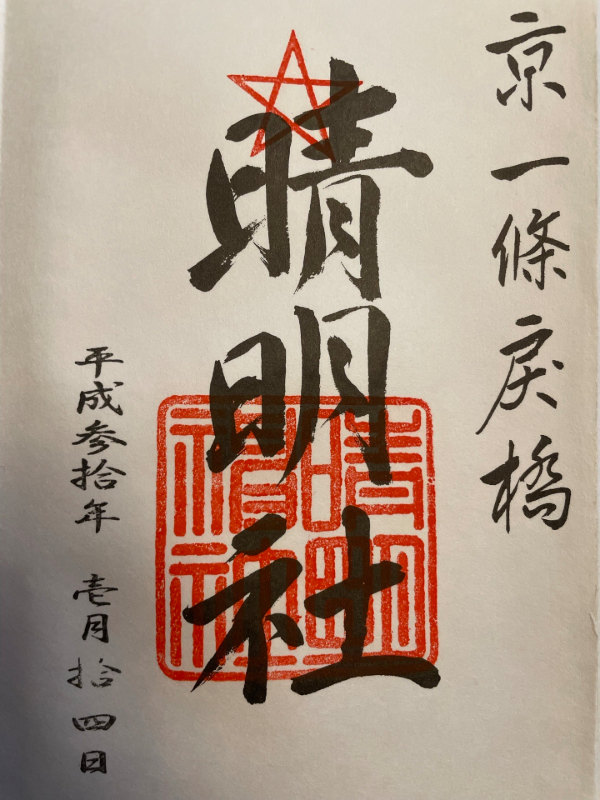 京一條戻橋
晴明社
晴明神社
平成参拾年 壱月拾四日